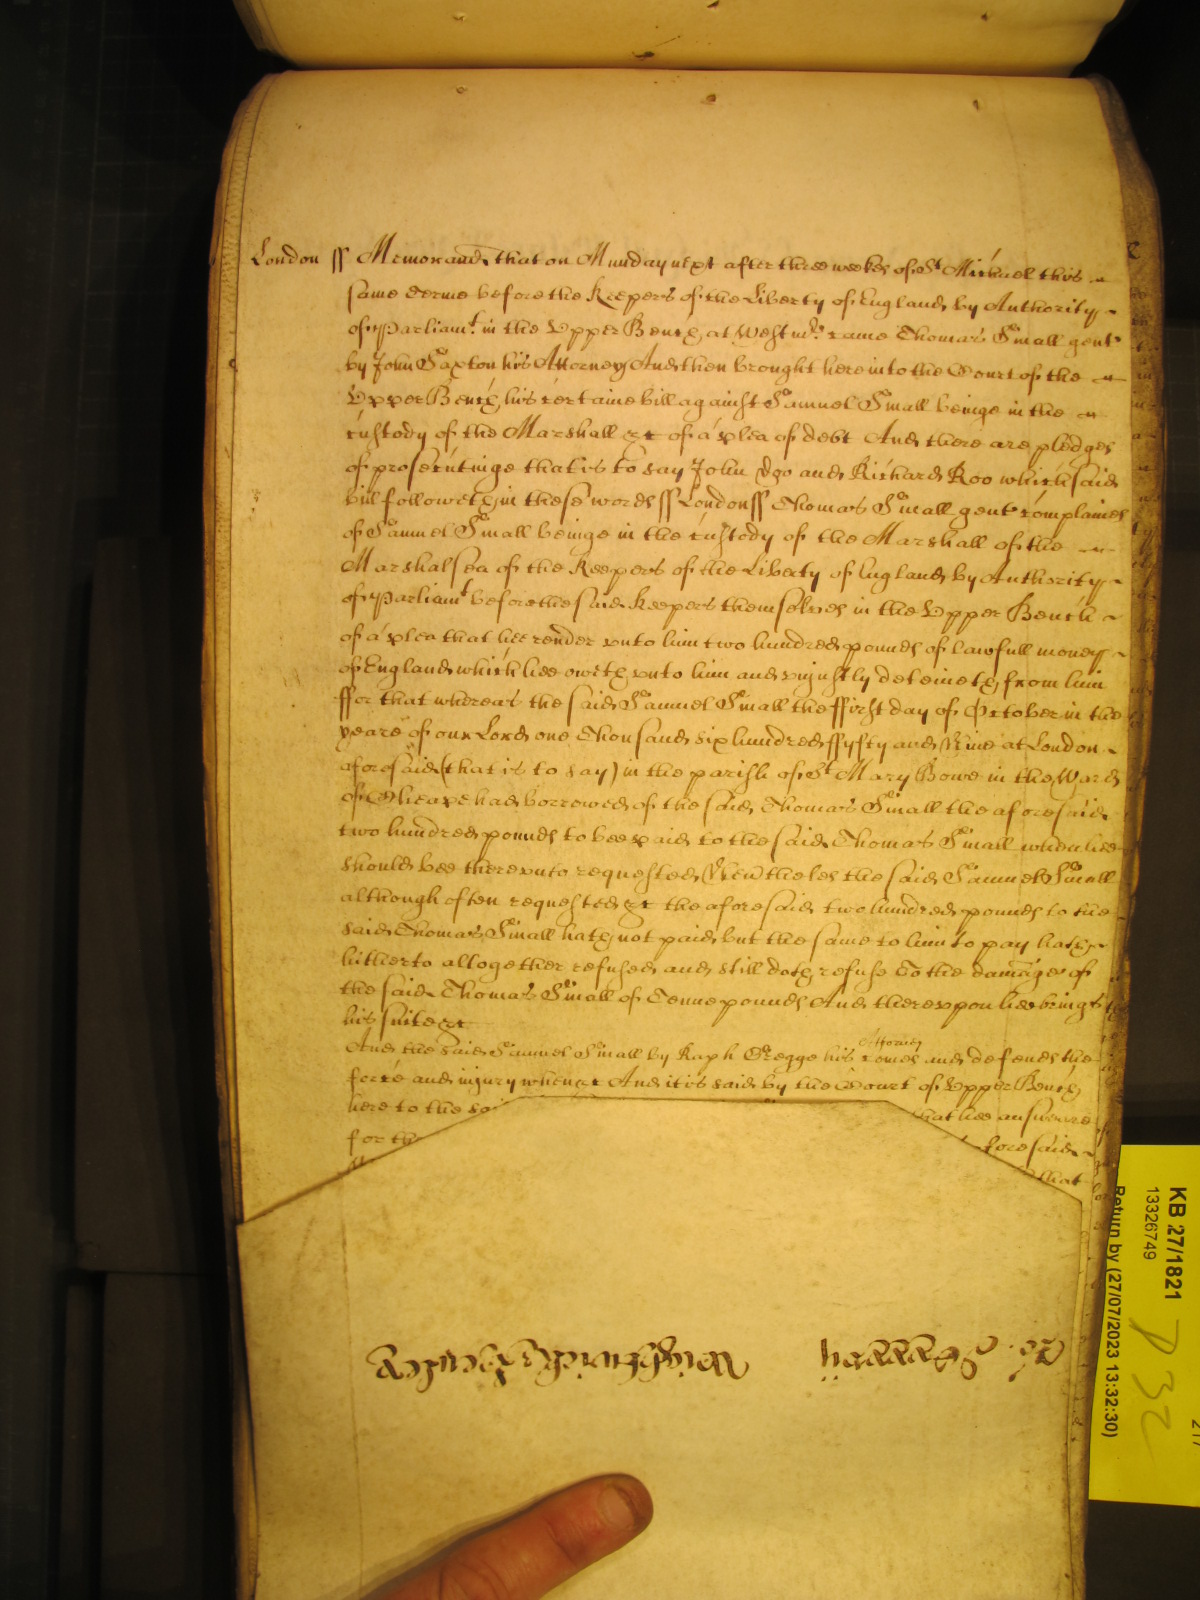 London ss Memorand that on Munday next after three weekes of St Michael this
same Terme before the Keepers of the Liberty of England by Authority
of Parliamt in the Upper Bench at Westmr came Thomas Small gent
by John Saxton his Attorney And then brought here into the Court of the
Upper Bench his certaine bill against Samuel Small beinge in the
custody of the Marshall &c of a plea of debt And there are pledges
of prosecutinge that is to say John Doo and Richard Roo which said
bill followeth in these words ss London ss Thomas Small gent complaines
of Samuel Small beinge in the custody of the Marshall of the
Marshalsea of the Keepers of the Liberty of England by Authority
of Parliamt before the said Keepers themselves in the Upper Bench
of a plea that hee render unto him two hundred pounds of lawfull money
of England which hee oweth unto him and unjustly deteineth from him
ffor that whereas the said Samuel Small the ffirst day of October in the
yeare of our Lord one Thousand six hundred ffyfty and Nine at London
aforesaid (that is to say) in the parish of St Mary Bowe in the Ward
of Cheape had borrowed of the said Thomas Small the aforesaid
two hundred pounds to bee paid to the said Thomas Small when hee
should bee thereunto requested Nevtheles the said Samuel Small
although often requested &c the aforesaid two hundred pounds to the
said Thomas Small hath not paid but the same to him to pay hath
hitherto altogether refused and still doth refuse To the damages of
the said Thomas Small of Tenne pounds And thereupon hee brings
his suite &c
And the said Samuel Small by Raph Gregge his Attorney comes and defends the
force and injury when &c And it is said by the Court of Upper Bench
here to the that hee answeare
for the foresaid
that
KB 27/1821
13326749
Return by (27/07/2023 13:32:30)
P 32
217